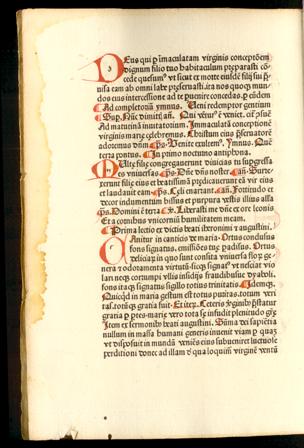 Eus qui p̱ immaculatam virginis conceptōem
dignum filio tuo habitaculum preparasti cō
cede quesumꝰ vt sicut ex morte eiusdē filij sui p̱
uisa eam ab omni labe preseruasti. ita nos quoqꝫ mun
dos eius intercessione ad te puenire concedas. p̱ eūdem
Ad completoriū ymnus. Ueni redemptor gentium
Sup̱. Nūc dimitt. añ.
Ad matutinā inuitatorium. Immaculatā conceptionē
virginis marię celebremus. Christum eius p̱seruatorē
adoremus dn̄m ps. Uenite exultemꝰ. Ymnus. Que
terra pontus. In primo nocturno antiphona.
Ulte filię congregauerunt diuicias tu supgressa
es vniuersas ps. Dn̄e dn̄s noster añ. Surre
xerunt filię eius et beatissimā predicauerunt eā vir eius
et laudauit eam ps. Celi enarrant añ. Fortitudo et
decor indumentum bissus et purpura vestis illius alla
ps. Domini ē terra v̄. Liberasti me dn̄e ex ore leonis
Et a cornibus vnicornium humilitatem meam.
Prima lectio ex dictis beati iheronimi z augustini.
Anitur in canticis de maria. Ortus conclusus
fons signatus. emissiões tuę padisus. Ortus
deliciaꝝ in quo sunt consita vniuersa floꝝ ge
nera z odoramenta virtutū. sicqꝫ signatꝰ vt nesciat vio
lari neqꝫ corrumpi vllis insidijs fraudibusue dyaboli.
fons itaqꝫ signatus sigillo totius trinitatis. Idemqꝫ.
Quicqͥd in maria gestum est totus puritas. totum veri
tas. totūqꝫ gratia fuit. Et iteꝝ. Ceteris
gratia p̱ ptes marię vero tota se infudit plenitudo gr̄ę
Item ex sermonibꝰ beati augustini. Sūma dei sapiētia
nullum in massa humani generis inuenit viam p̱ quaꝫ
vt disposuit in mundū veniēs eius subueniret luctuose
perditioni donec ad illam d qua loquim̄ virginē ventū